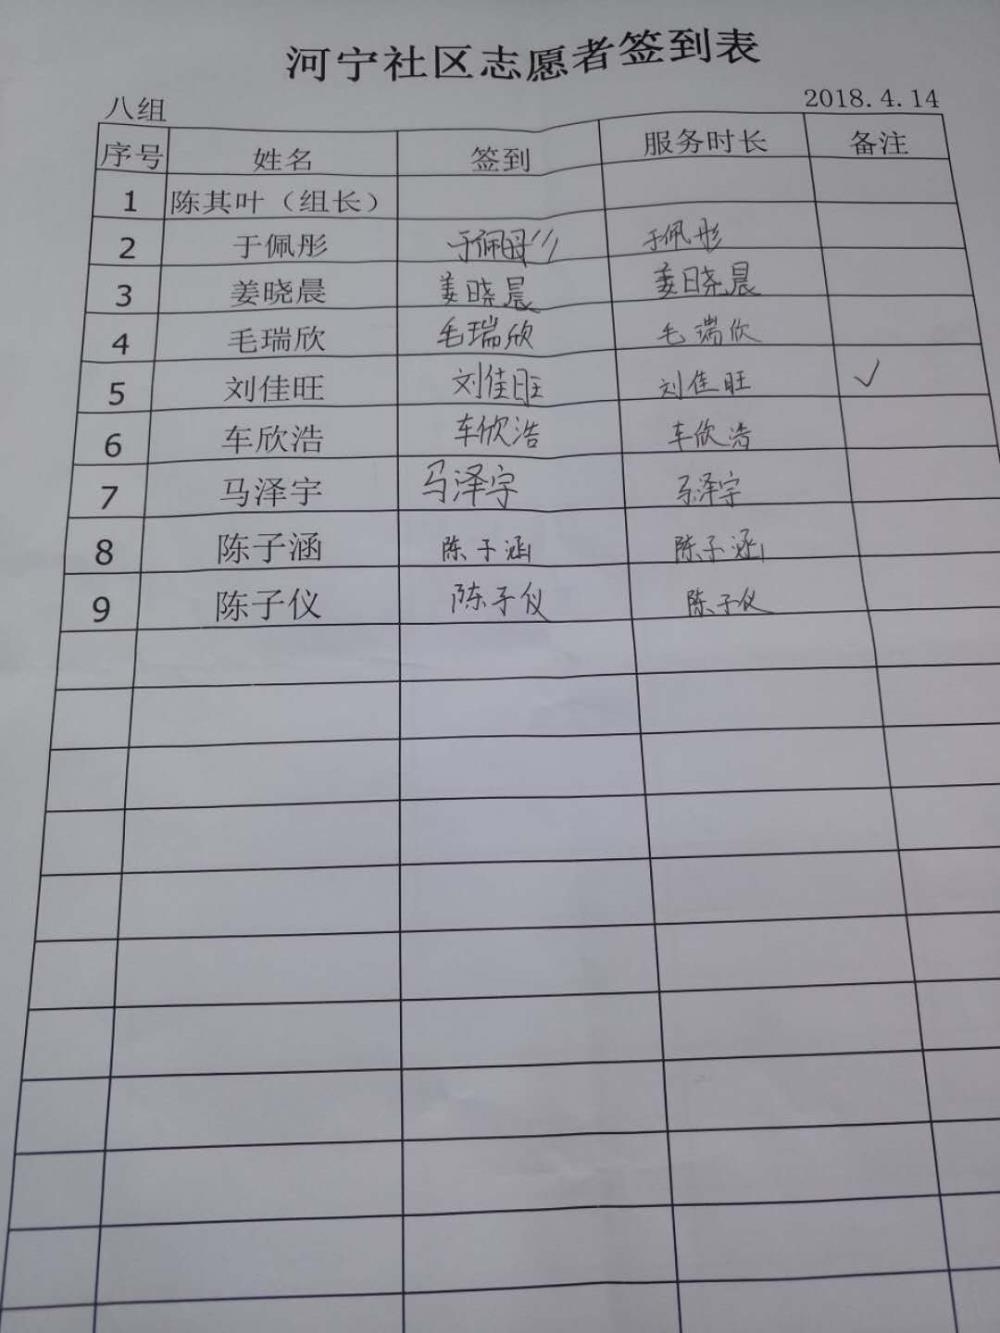 河宁社区志愿者签到表
八组 2018.4.14
序号 姓名 签到 服务时长 备注
1 陈其叶（组长）
2 于佩彤 于佩彤 于佩彤
3 姜晓晨 姜晓晨 姜晓晨
4 毛瑞欣 毛瑞欣 毛瑞欣
5 刘佳旺 刘佳旺 刘佳旺 ✓
6 车欣浩 车欣浩 车欣浩
7 马泽宇 马泽宇 马泽宇
8 陈子涵 陈子涵 陈子涵
9 陈子仪 陈子仪 陈子仪